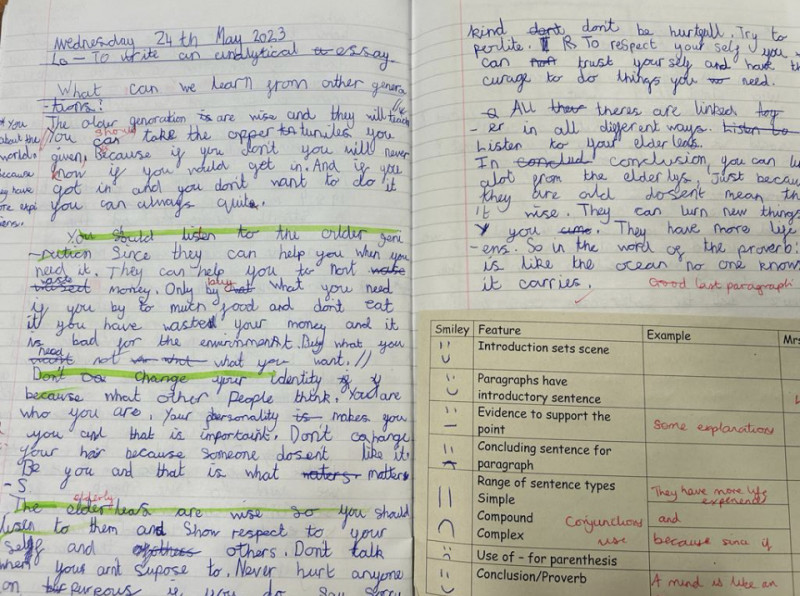 Wednesday 24th May 2023
Lo - To write an analytical essay
What can we learn from other genera
-tions?
The older generation are wise and they will teach
You should take the oppertunities you
given, because if you don't you will never
know if you would get in. And if you
got in and you don't want to do it
you can always quite.
You
about the
world.
Because
they have
more expi
iens.
You should listen to the older gene
-ration Since they can help you when you
need it. They can help you to not
waste money. Only buy what you need
if you by to much food and dont eat
it you have wasted your money and it
is bad for the envirnment. Buy what you
need not what you want. //
Don't change your identity
because what other people think. You are
who you are. Your personality makes you
you and that is important. Don't cahange
your hair because someone dosent like it.
Be you and that is what matter
-s.
The elderly are wise so you should
lisen to them and show respect to your
self and others. Don't talk
when your arnt supose to. Never hurt anyone
on purpous if you do say sorry
kind don't be hurtfull. Try to
perlite. R. To respect your self you
can trust yourself and have th
curage to do things you need.
All theres are linked tog
-er in all different ways.
Listen to your elderleas.
In conclusion, you can l
alot from the elderlys, Just becau
they are old dosent mean th
it wise. They can lurn new things
you. They have more life
-ens. So in the word of the proverb:
is like the ocean no one knows
it carries.
Good last paragraph
Smiley Feature Example Mrs
Introduction sets scene
Paragraphs have
introductory sentence
Evidence to support the
point
Some explanations
Concluding sentence for
paragraph
Range of sentence types
Simple
Compound
Complex
They have more life
experience
Conjunctions
use
and
because since if
Use of - for parenthesis
Conclusion/Proverb
A mind is like an